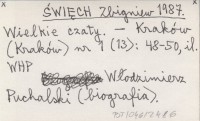 ŚWIĘCH Zbigniew 1987.
Wielkie czaty. – Kraków
(Kraków) nr 1 (13): 48-50, il.
WHP
Włodzimierz
Puchalski (biografia).